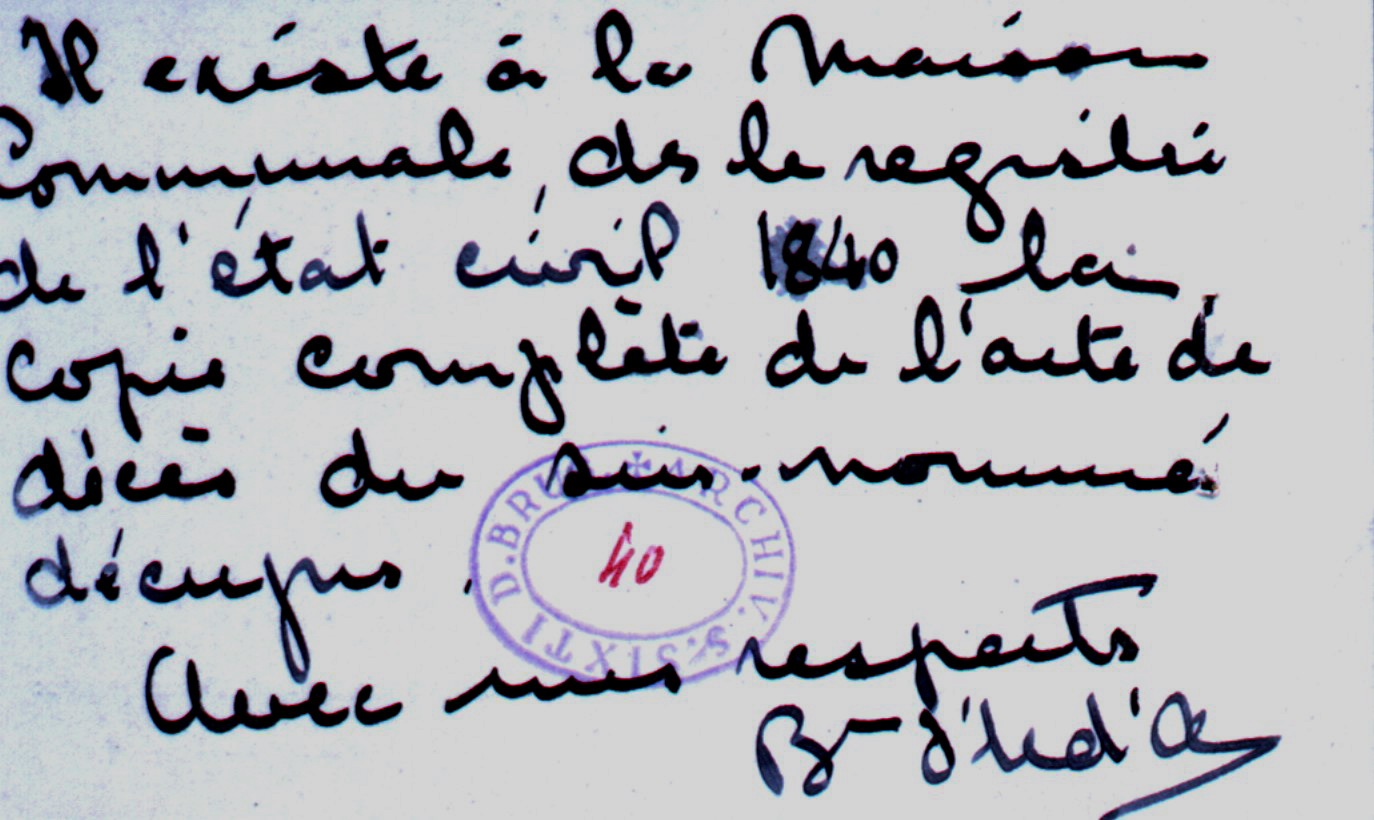 Il existe à la Maison
Communale, ds le registre
de l'état civil 1840 la
copie complète de l'acte de
décès du sus-nommé
décujus.
ARCHIV. S. SIXTI D. BRUG
40
Avec mes respects
Bon